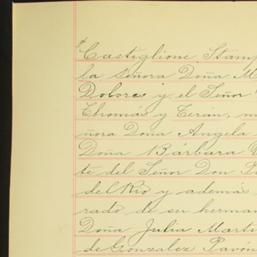 Castiglione Stamp
la Señora Doña M
Dolores y el Señor
Thomás y Teran, m
ñora Doña Angela
Doña Bárbara
te del Señor Don
del Rio y además
rado de su herman
Doña Julia Marti
de Gonzalez Pavón